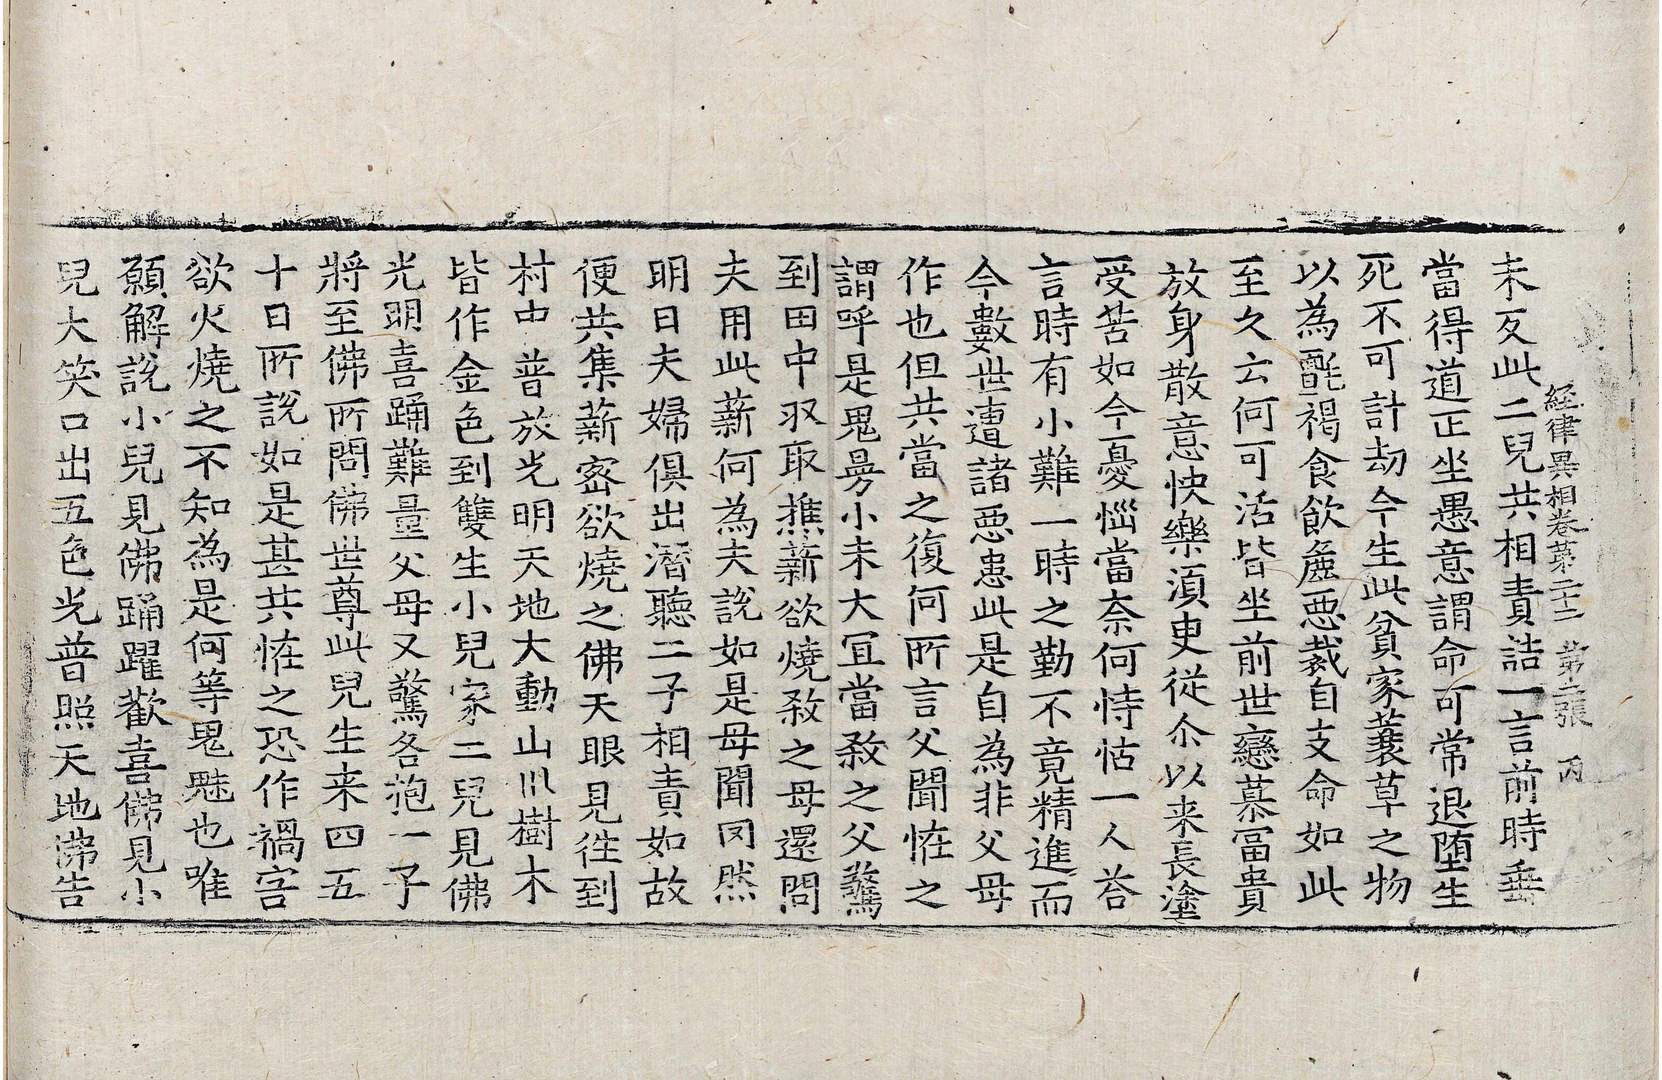 経律異相卷苐二十二 苐二張 丙
未反此二兒共相責詰一言前時垂
當得道正坐愚意謂命可常退堕生
死不可計劫今生此貧家蓑草之物
以為氎褐食飲麁惡裁自支命如此
至久云何可活皆坐前世戀慕冨貴
放身散意快樂湏史從尒以来長塗
受苦如今憂惱當奈何恃怙一人荅
言時有小難一時之勤不竟精進而
今數世遭諸惡患此是自為非父母
作也但共當之復何所言父聞恠之
謂呼是鬼㫄小未大冝當煞之父驚
到田中収取樵薪欲燒煞之母還問
夫用此薪何為夫說如是母聞罔然
明日夫婦俱出潜聽二子相責如故
便共集薪宻欲燒之佛天眼見徃到
村中普放光明天地大動山川樹木
皆作金色到雙生小兒家二兒見佛
光明喜踊難量父母又驚各抱一子
將至佛所問佛世尊此兒生来四五
十日所說如是甚共恠之恐作禍害
欲火燒之不知為是何等鬼魅也唯
願解說小兒見佛踊躍歡喜佛見小
兒大笑口出五色光普照天地佛告